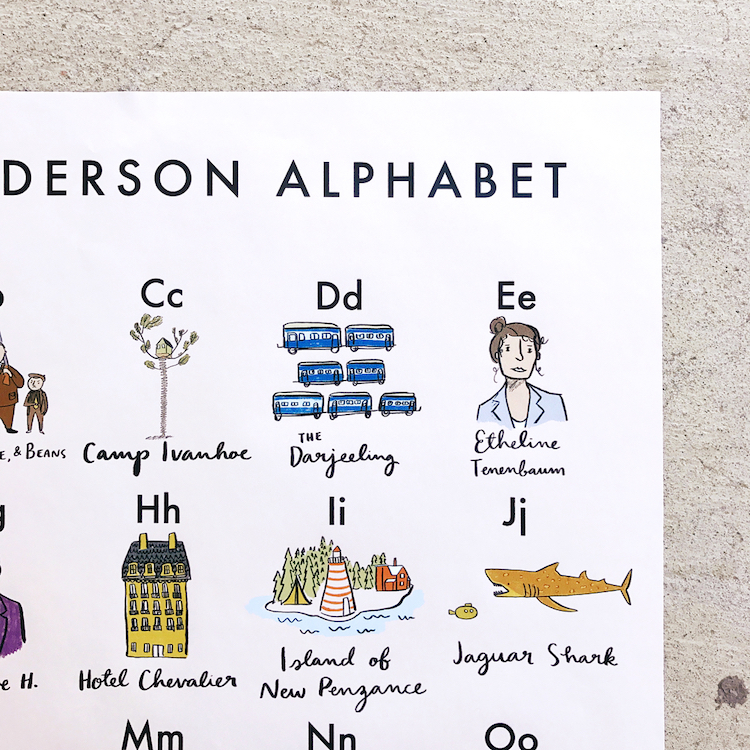 DERSON ALPHABET
Cc Dd Ee
E, & BEANS Camp Ivanhoe THE Darjeeling Etheline Tenenbaum
Hh Ii Jj
e H. Hotel Chevalier Island of New Penzance Jaguar Shark
Mm Nn Oo